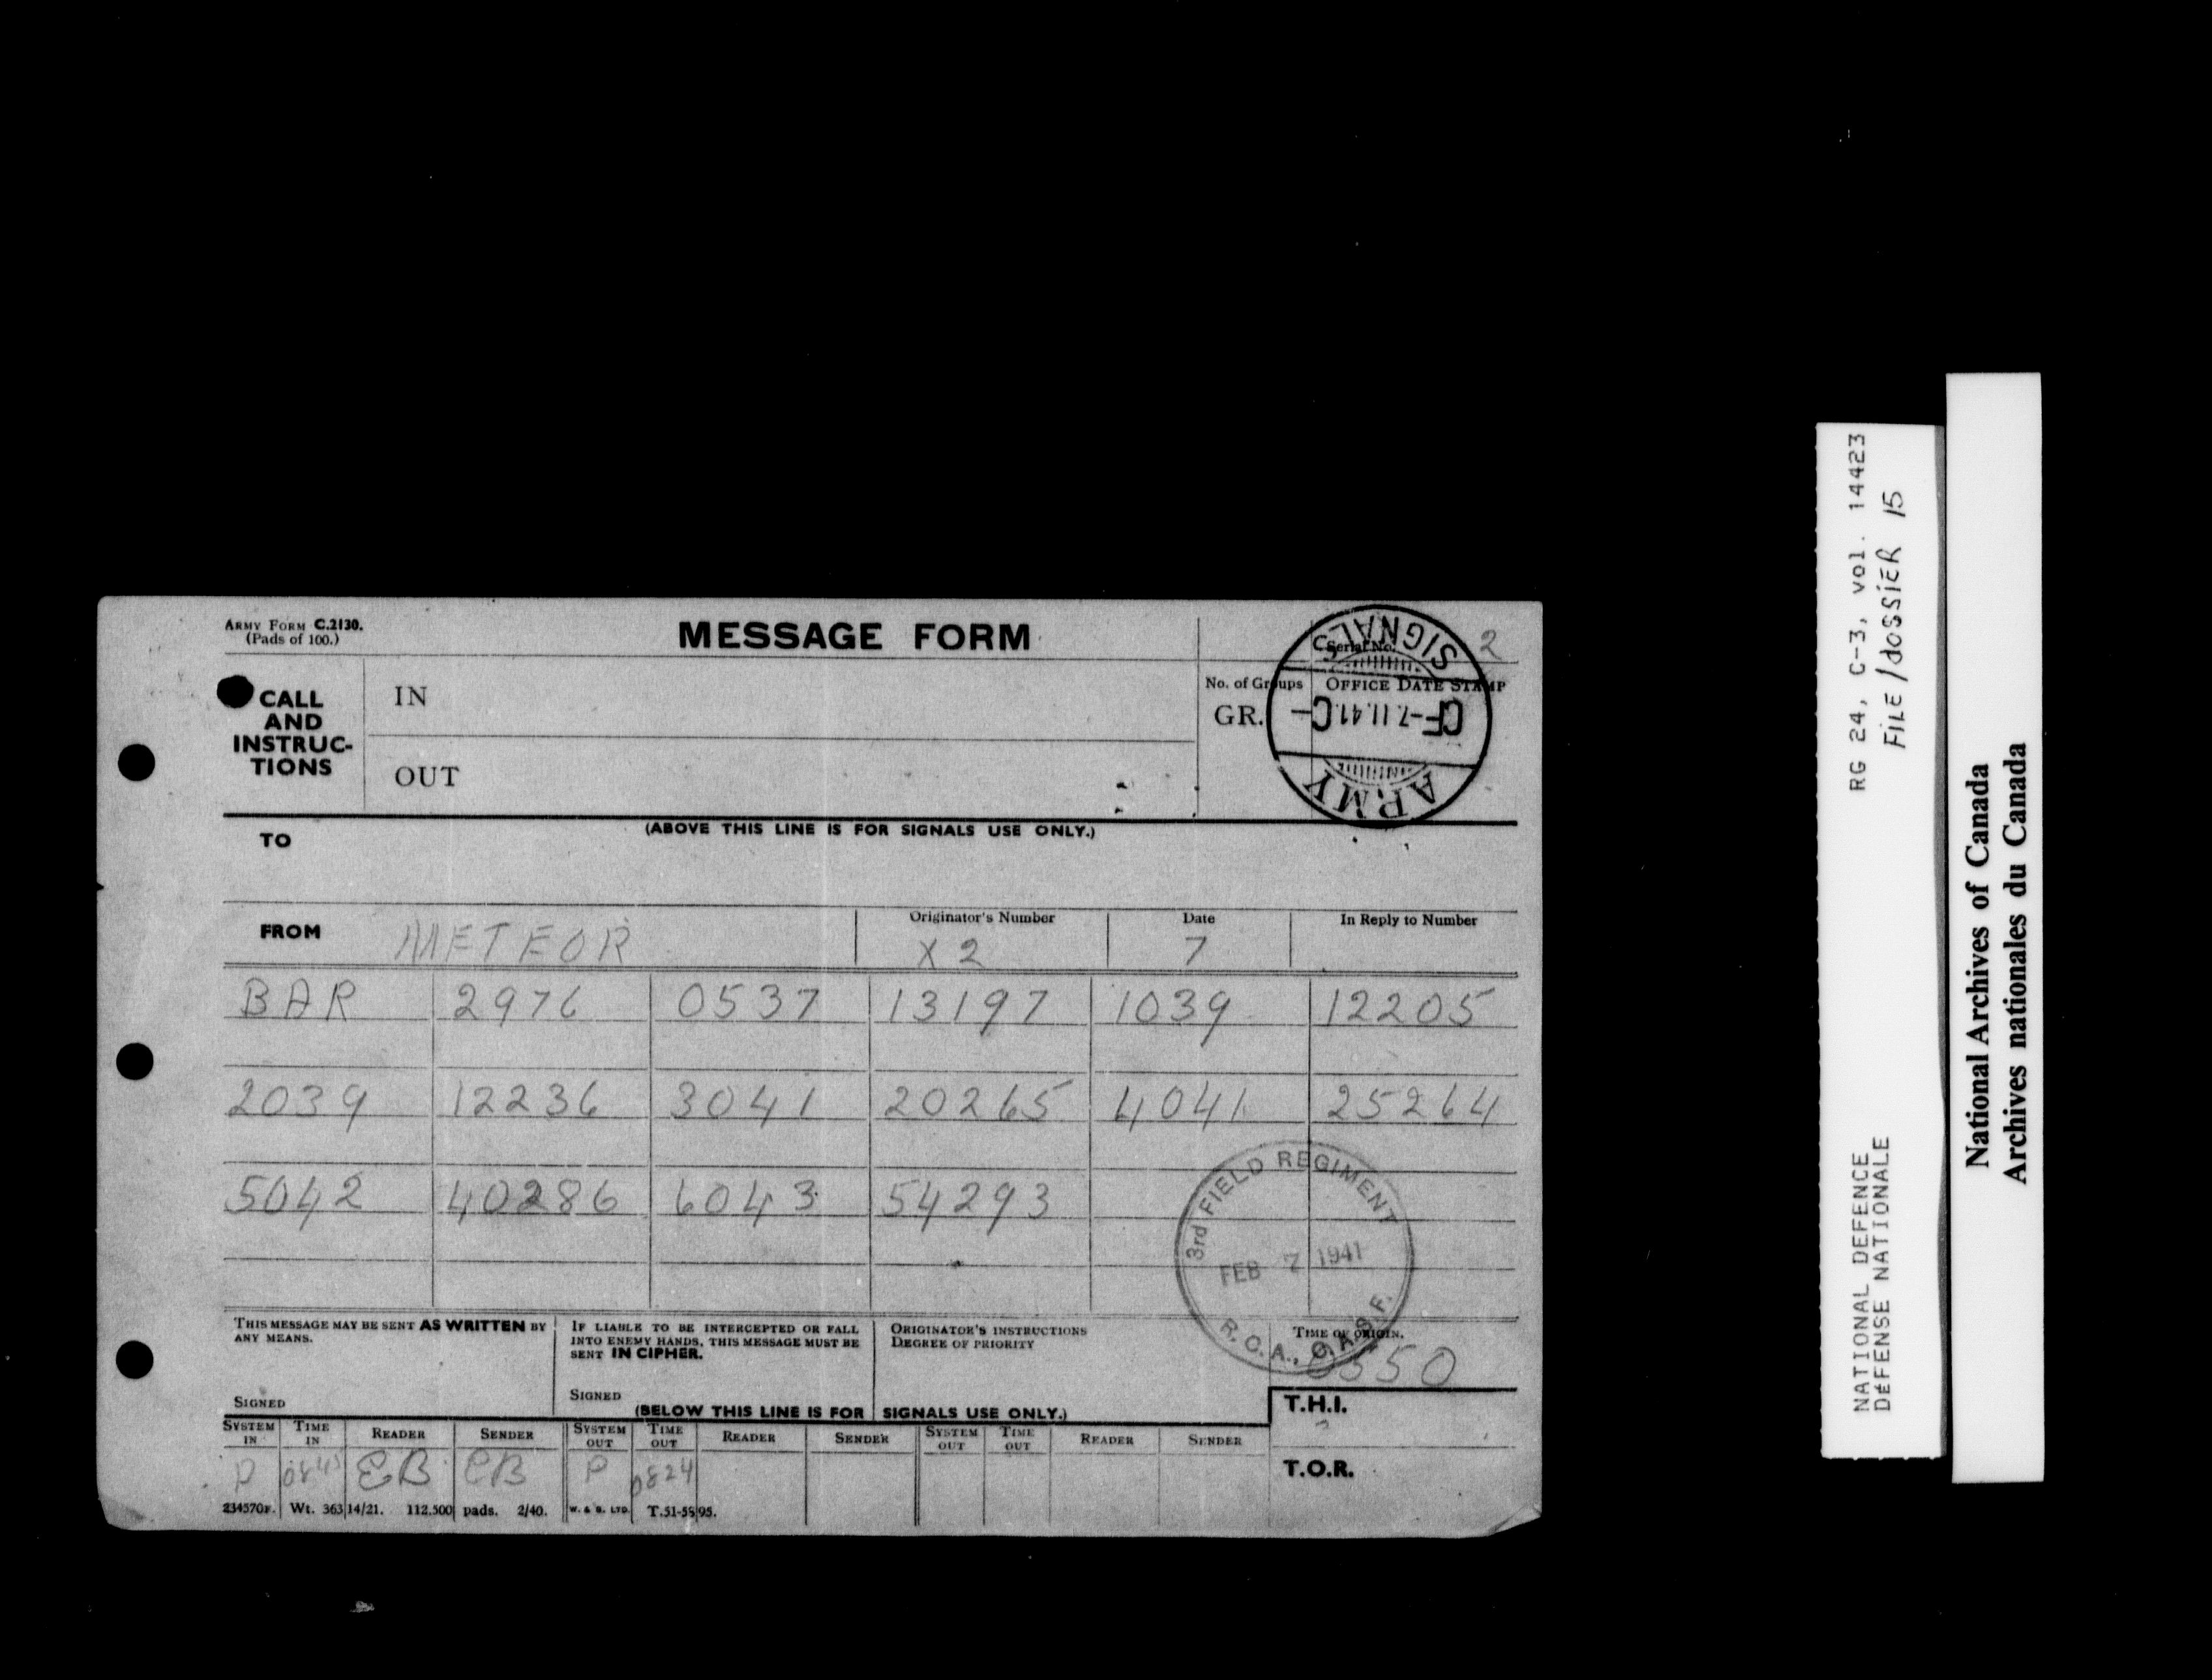 ARMY FORM C.2130.
(Pads of 100.)
MESSAGE FORM
Serial No. 2
CALL
AND
INSTRUC-
TIONS
IN
OUT
No. of Groups
GR.
OFFICE DATE STAMP
ARMY
CF-7.II.41.C-
SIGNALS
(ABOVE THIS LINE IS FOR SIGNALS USE ONLY.)
TO
FROM METEOR
Originator's Number
X2
Date
7
In Reply to Number
BAR 2976 0537 13197 1039 12205
2039 12236 3041 20265 4041 25264
5042 40286 6043 54293
3rd FIELD REGIMENT
FEB 7 1941
R.C.A., C.A.S.F.
THIS MESSAGE MAY BE SENT AS WRITTEN BY
ANY MEANS.
SIGNED
IF LIABLE TO BE INTERCEPTED OR FALL
INTO ENEMY HANDS, THIS MESSAGE MUST BE
SENT IN CIPHER.
SIGNED
ORIGINATOR'S INSTRUCTIONS
DEGREE OF PRIORITY
TIME OF ORIGIN.
0550
(BELOW THIS LINE IS FOR SIGNALS USE ONLY.)
T.H.I.
T.O.R.
SYSTEM IN TIME IN READER SENDER SYSTEM OUT TIME OUT READER SENDER SYSTEM OUT TIME OUT READER SENDER
P EB EB P 0824
234570F. Wt. 36314/21. 112.500 pads. 2/40. W. & S. LTD. T.51-5595.
RG 24, C-3, vol. 14423
FILE/dOSSIER 15
NATIONAL DEFENCE
DéFENSE NATIONALE
National Archives of Canada
Archives nationales du Canada